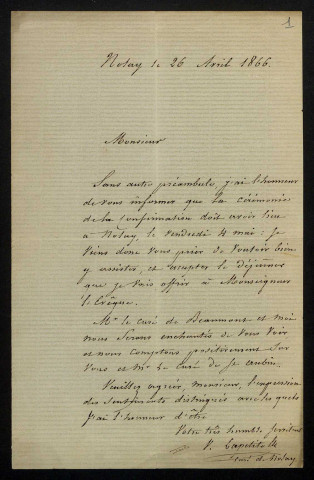 1
Nolay le 26 Avril 1866.
Monsieur
Sans autre préambule, j'ai l'honneur
de vous informer que la cérémonie
de la Confirmation doit avoir lieu
à Nolay, le vendredi 4 mai: Je
viens donc vous prier de vouloir bien
y assister, et accepter le déjeuner
que je vais offrir à Monseigneur
l'Evêque.
Mr le curé de Beaumont et moi
nous serons enchantés de vous voir
et nous comptons positivement sur
vous et Mr le curé de St
Veuillez agréer, monsieur, l'expression
des sentiments distingués avec lesquels
j'ai l'honneur d'être
Votre très humble serviteur
curé de Nolay